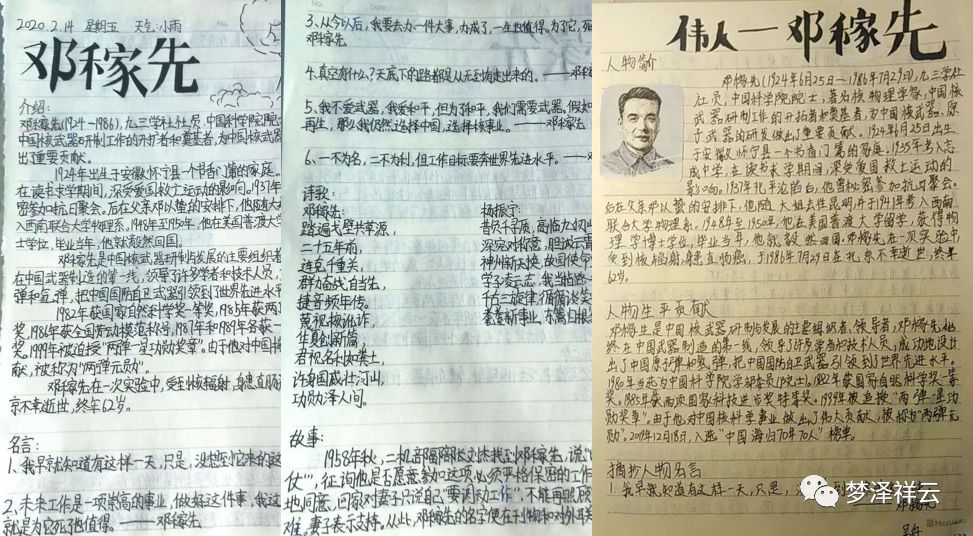 2020.2.14 星期五 天气:小雨
邓稼先
介绍:
邓稼先(1924-1986),九三学社社员,中国科学院院士
中国核武器研制工作的开拓者和奠基者,为中国核武器
出了重要贡献。
1924年出生于安徽怀宁县一个书香门第的家庭。
在读书求学期间,深受爱国救亡运动的影响。1937年
密参加抗日聚会。后在父亲邓以蛰的安排下,他随大
入西南联合大学物理系,1948年至1950年,他在美国普渡大学
士学位,毕业当年,他就毅然回国。
邓稼先是中国核武器研制与发展的主要组织者
在中国武器制造的第一线,领导了许多学者和技术人员,
弹和氢弹,把中国国防自卫武器引领到了世界先进水平
1982年获国家自然科学奖一等奖,1985年获两
奖,1986年获全国劳动模范称号,1987年和1989年各获一
奖,1999年被追授"两弹一星功勋奖章"。由于他对中国
献,被称为"两弹元勋"。
邓稼先在一次实验中,受到核辐射,身患直肠
京不幸逝世,终年62岁。
名言:
1、我早就知道有这样一天,只是,没想到它来的这
2、未来工作是一项崇高的事业,做好这件事,我这
就是为它死了也值得。——邓稼先
3、从今以后,我要去办一件大事,办成了,一生也值得,为了它,死
邓稼先
4、真空有什么?天底下的路都是从无到有走出来的。——邓
5、我不爱武器,我爱和平,但为了和平,我们需要武器。假如
再生,那么我仍然选择中国,选择核事业。——邓稼先
6、一不为名,二不为利,但工作目标要奔世界先进水平。——邓
诗歌:
邓稼先:
踏遍戈壁共草原,
二十五年前,
连克千重关,
群力奋战自当先,
捷音频年传。
蔑视核讹诈,
华夏创新篇,
君视名利如粪土,
许身国威壮河山,
功勋泽人间。
杨振宁:
昔负千寻质,高临九仞
深究对称意,胆识云霄
神州新天换,故园使命
学子凌云志,我当指路
千古三旋律,循循谈笑
耄耋新事业,东篱归根
故事:
1958年秋,二机部副部长刘杰找到邓稼先,说"
仗",征询他是否愿意参加这项必须严格保密的工作
地同意,回家对妻子只说自己"要调动工作",不能再照顾
难。妻子表示支持。从此,邓稼先的名字便在刊物和对外联
伟人—邓稼先
人物简介
邓稼先(1924年6月25日—1986年7月29日),九三学社
社员,中国科学院院士,著名核物理学家,中国核
武器研制工作的开拓者和奠基者,为中国核武器、原
子武器的研发做出了重要贡献。1924年6月25日出生
于安徽怀宁县一个书香门第的家庭。1935年考入志
成中学,在读书求学期间,深受爱国救亡运动的
影响。1937年北平沦陷后,他曾秘密参加抗日聚会。
后在父亲邓以蛰的安排下,他随大姐去往昆明,并于1941年考入西南
联合大学物理系。1948年至1950年,他在美国普渡大学留学,获得物
理学博士学位,毕业当年,他就毅然回国。邓稼先在一次实验中,
受到核辐射,身患直肠癌,于1986年7月29日在北京不幸逝世,终年
62岁。
人物生平贡献
邓稼先是中国核武器研制与发展的主要组织者、领导者,邓稼先始
终在中国武器制造的第一线,领导了许多学者和技术人员,成功地设计
出了中国原子弹和氢弹,把中国国防自卫武器引领到了世界先进水平。
1980年当选为中国科学院学部委员(院士)。1982年获国家自然科学奖一等
奖。1985年获两项国家科技进步奖特等奖。1999年被追授"两弹一星功
勋奖章"。由于他对中国核科学事业做出了伟大贡献,被称为"两弹元
勋"。2019年12月18日,入选"中国海归70年70人"榜单。
摘抄人物名言
1、我早就知道有这样一天,只是,
邓稼先
梦泽祥云